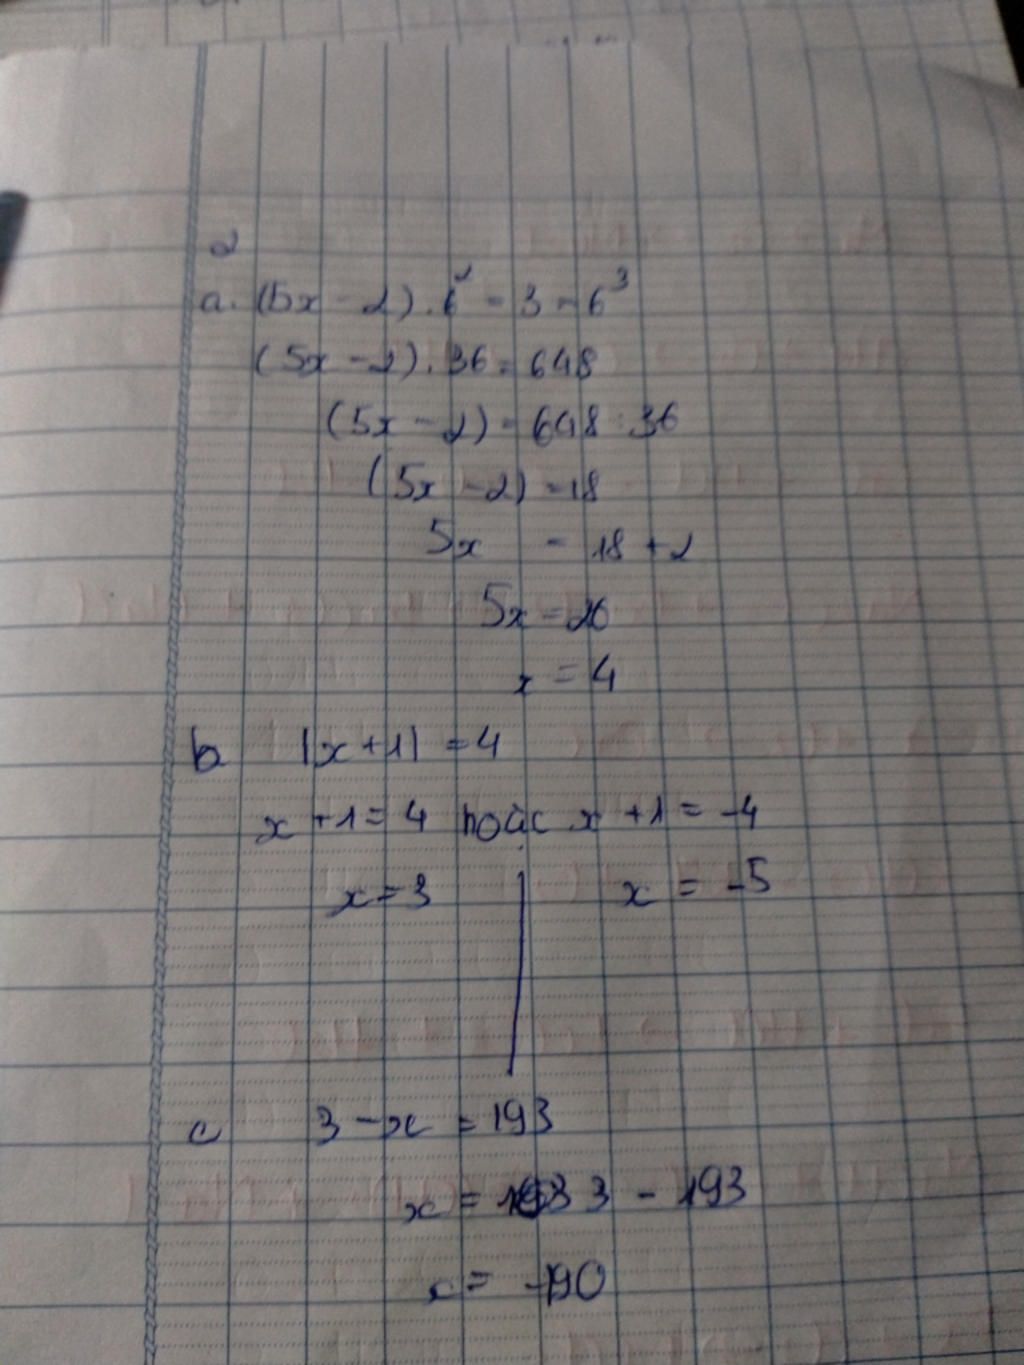 2
a. (5x - 2) . 6² = 3 - 6³
(5x - 2) . 36 = 648
(5x - 2) = 648 : 36
(5x - 2) = 18
5x = 18 + 2
5x = 20
x = 4
b |x + 1| = 4
x + 1 = 4 hoặc x + 1 = -4
x = 3 x = -5
c 3 - x = 193
x = 3 - 193
x = -190